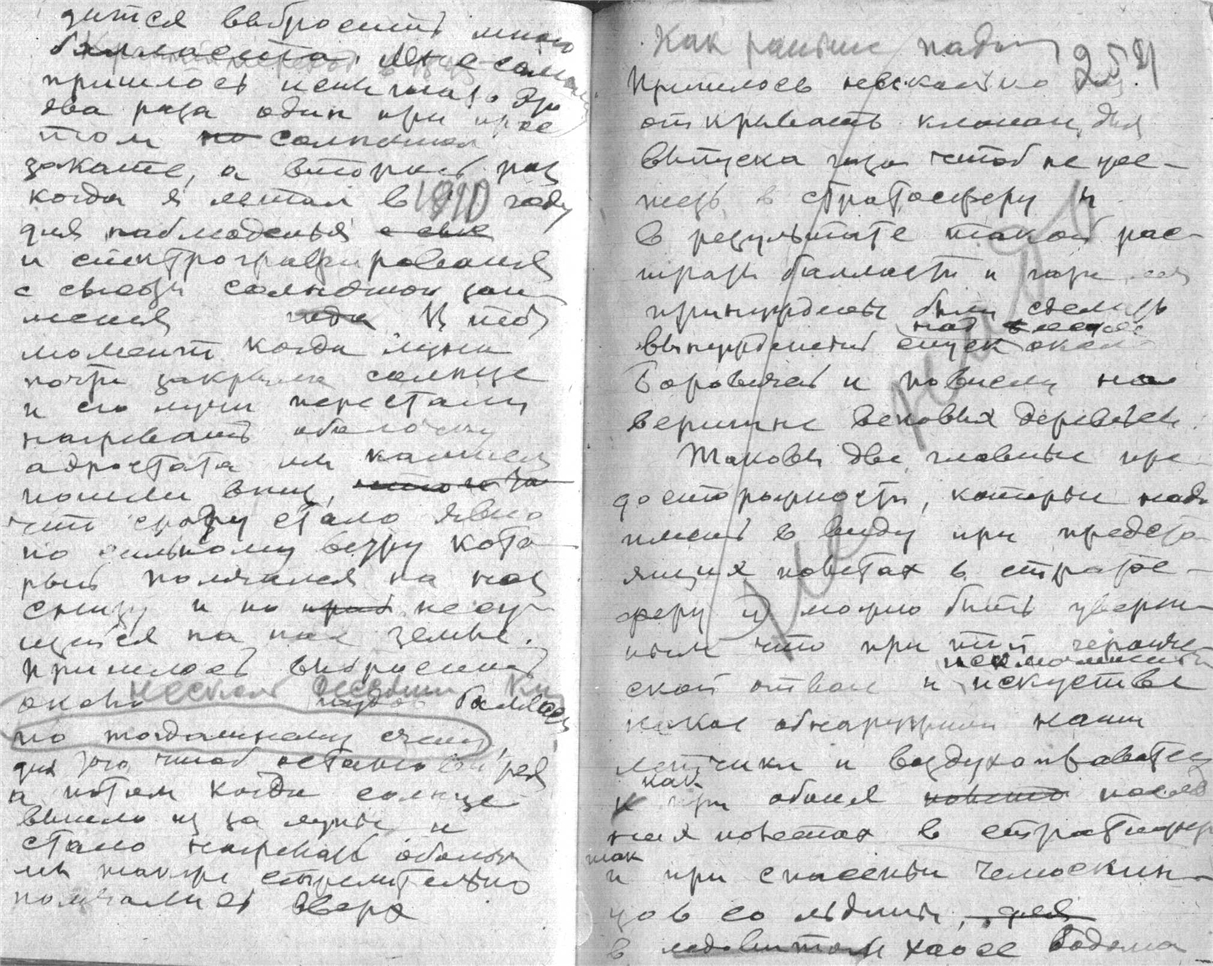 дится выбросить много
балласта. Мне само
пришлось испытать
два раза один при
том но солнечном
закате, а второй раз
когда я летал в 1910 году
для наблюденья
и спектрографирования
с выси солнечном зат
мения года В тот
момент когда луна
почти закрыла солнце
и его лучи перестали
нагревать оболочку
аэростата мы камнем
пошли вниз,
что сразу стало явно
по сильному ветру кото
рый помчался на нас
снизу и по несу
щейся на нас земле.
Пришлось выбросить
около несколь пудов балласт
по тогдашнему счету
для того чтоб остановиться
а потом когда солнце
вышло из за луны и
стало нагревать оболоч
мы также стремительно
помчались вверх
Как раньше надо 251
Пришлось несколько
открывать клапан, для
выпуска газа чтоб не уле-
теть в стратосферу и
в результате такой рас-
траты балласта и газа
принуждены были сделать
вынужденный спуск около
Боровичей и повисли на
вершине вековых деревьев.
не надо
Таковы две главные пре-
досторожности, которые надо
иметь в виду при предсто-
ящих полетах в страто-
сферу и можно быть уверен-
ным что при той героиче
ской отваге и искустве
какое обнаружили наши
летчики и воздухоплаватели
как при обоих послед
них полетах в стратосферу
так
и при спасеньи челюскин-
цов со льдины, для
в ледовитом хаосе